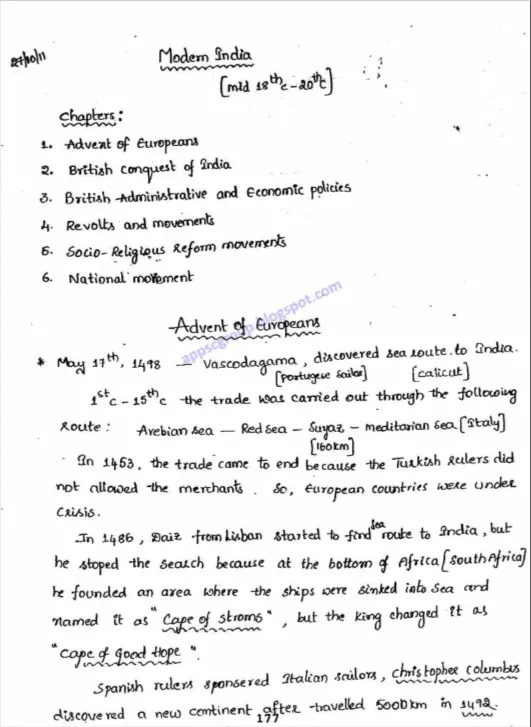 27/10/11
Modern India
[mid 18th c - 20th c]
Chapters:
1. Advent of Europeans
2. British conquest of India
3. British Administrative and Economic policies
4. Revolts and movements
5. Socio-Religious Reform movements
6. National movement
appscgroup.blogspot.com
Advent of Europeans
* May 17th, 1498 — Vascodagama, discovered sea route to India.
[Portugese sailor] [calicut]
1st c - 15th c the trade was carried out through the following
Route: Arebian sea — Red sea - Suyaz - meditarian sea [Italy]
[160km]
In 1453, the trade came to end because the Turkish rulers did
not allowed the merchants. So, European countries were under
crisis.
In 1486, Daiz from Lisban started to find sea route to India, but
he stoped the search because at the bottom of Africa [South Africa]
he founded an area where the ships were sinked into sea and
named it as "Cape of stroms", but the king changed it as
"Cape of Good Hope".
Spanish rulers sponsered Italian sailors, Christopher Columbus
discovered a new continent after travelled 5000km in 1492.
177